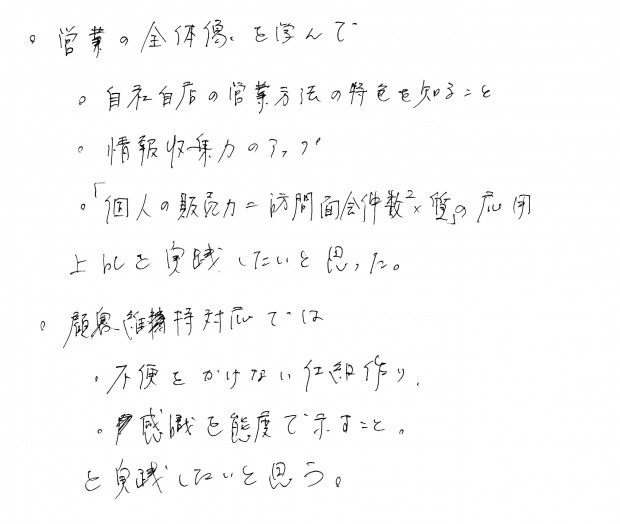 。営業の全体像を学んで
。自社自店の営業方法の特色を知ること
。情報収集力のアップ
。「個人の販売力=訪問面会件数²×質」の応用
上記を実践したいと思った。
。顧客維持対応では
・不便をかけない仕組作り、
・感謝を態度で示すこと。
を実践したいと思う。